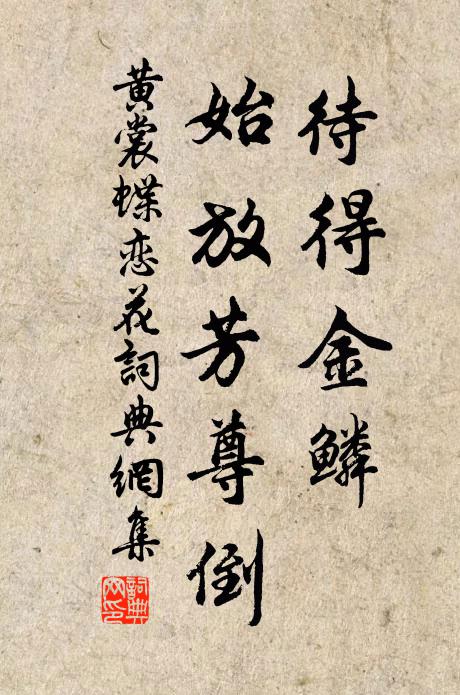 待得金鳞
始放芳尊倒
黄裳蝶恋花詞典網集
詞典文印